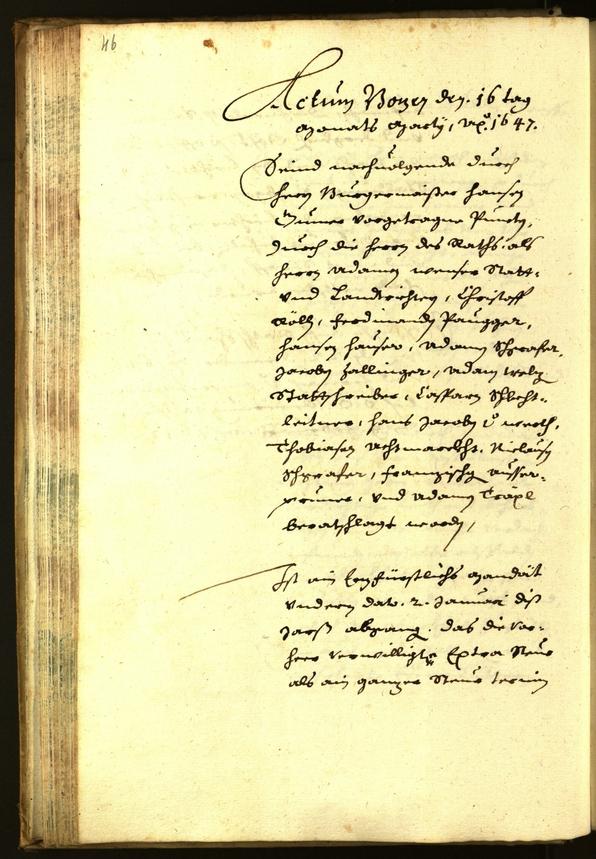 46
Actum Bozen den 16 tag
Monats Marty, A͠o. 1647.
Seind nachuolgende durch
herrn Burgermaister Hansen
Gumer vorgetragne Puncten,
durch die herrn des Raths, als
herrn Adamen Wenser Statt-
vnd Landrichter, Christoff
Köll, Ferdinanden Paugger,
Hansen Hauser, Adamen Schgrafer,
Jacoben Zallinger, Adam Welz
Stattschreiber, Casparn Schlecht-
leitner, Hans Jacoben v. Werth,
Thobiasen Achtmarckht, Niclausen
Schgrafer, Franzischgen Ausser-
prunner, vnd Adamen Träxl
beratschlagt worden,
Ist ain Erzfürstlichs Mandat
vndern dato 2. Januari diß
Jarß abgang. das die vor-
heer verwilligte Extra Steur
als ain ganzer Steur termin